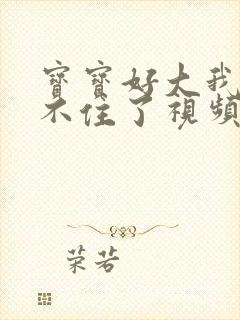 寶寶好大我
不住了視頻
荣若